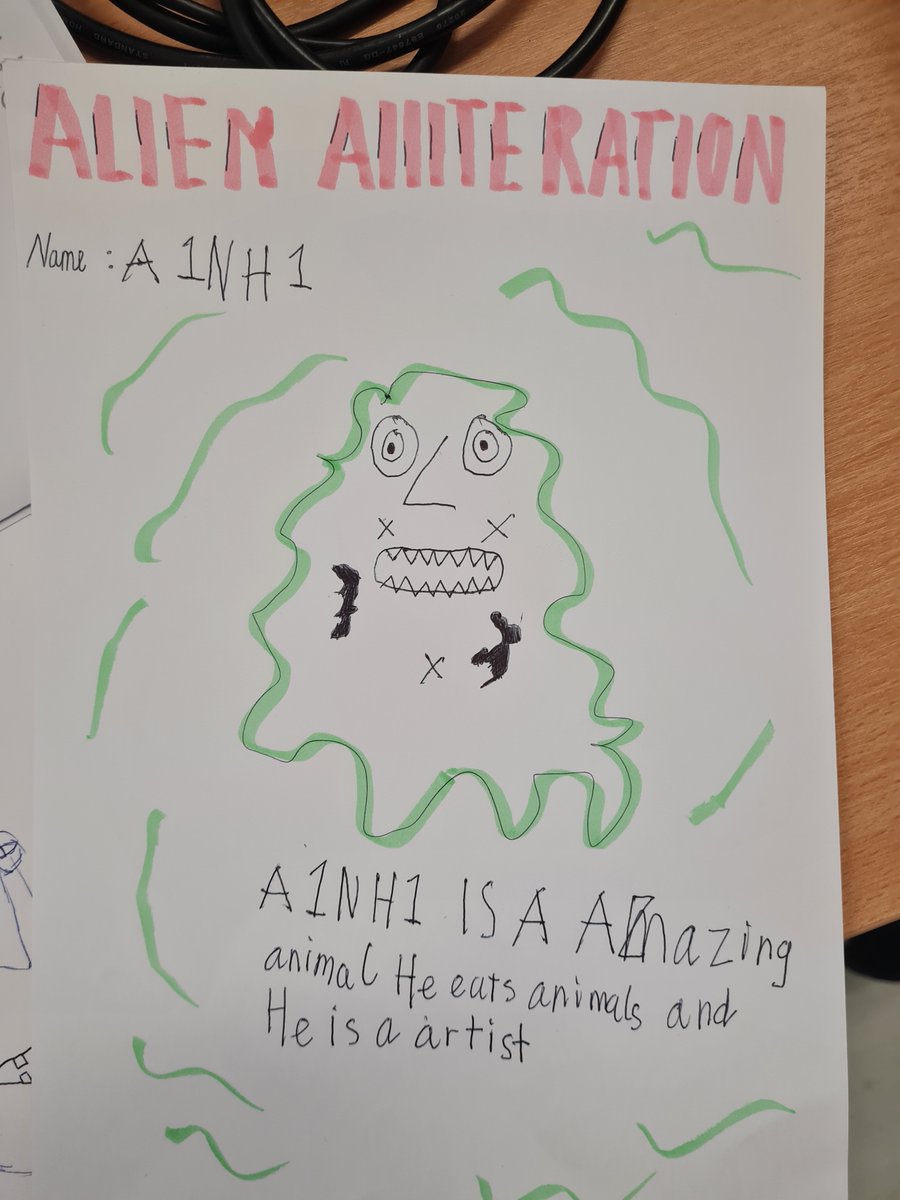 ALIEN AlIITERATION
Name : A 1NH1
A1NH1 IS A Amazing
animal He eats animals and
He is a artist